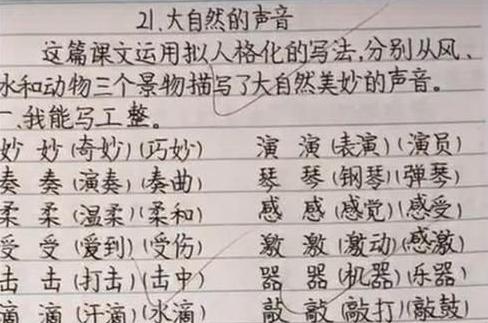 21.大自然的声音
这篇课文运用拟人格化的写法,分别从风、
水和动物三个景物描写了大自然美妙的声音。
一、我能写工整。
妙 妙(奇妙)(巧妙) 演 演(表演)(演员)
奏 奏(演奏)(奏曲) 琴 琴(钢琴)(弹琴)
柔 柔(温柔)(柔和) 感 感(感觉)(感受)
受 受(爱到)(受伤) 激 激(激动)(感激)
击 击(打击)(击中) 器 器(机器)(乐器)
滴 滴(汗滴)(水滴) 敲 敲(敲打)(敲鼓)